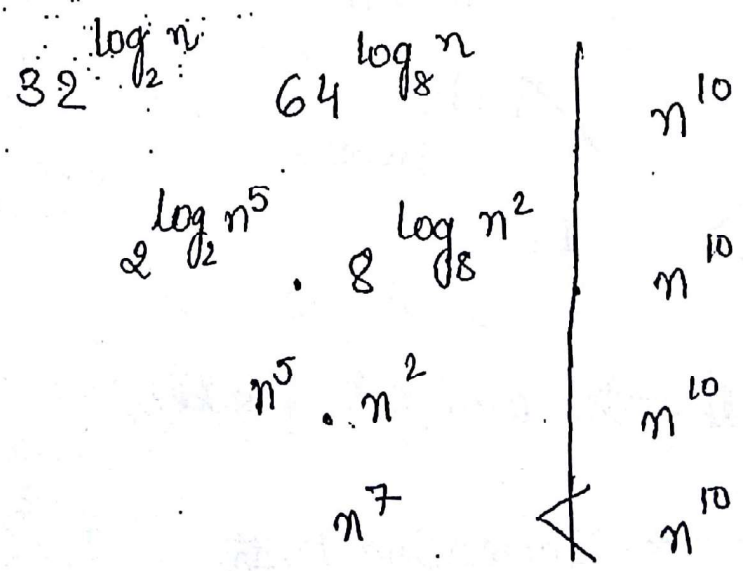 32^{log_2 n} 64^{log_8 n} | n^{10}
2^{log_2 n^5} . 8^{log_8 n^2} | n^{10}
n^5 . n^2 | n^{10}
n^7 < n^{10}